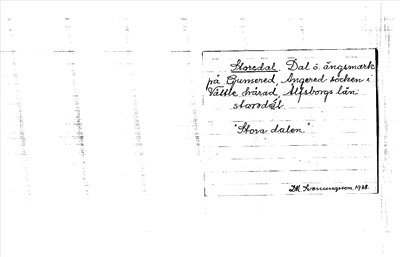 Storedal. Dal ö. ängsmark
på Gunnered, Angered socken i
Vättle härad, Älfsborgs län.
"Stora dalen."
1928.